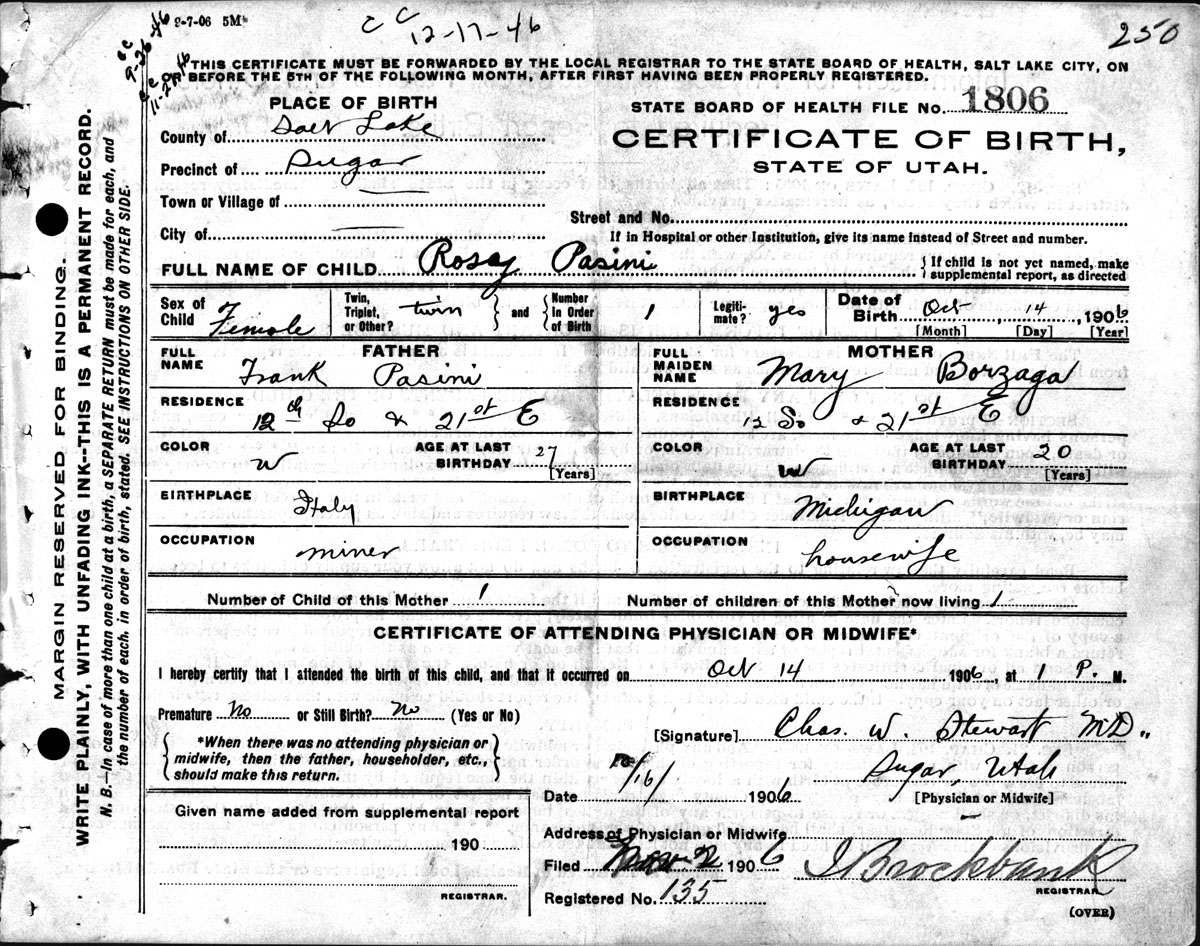 9-7-06 5M
c c
12-17-46
250
cc
9-26-46
cc
11-29-46
THIS CERTIFICATE MUST BE FORWARDED BY THE LOCAL REGISTRAR TO THE STATE BOARD OF HEALTH, SALT LAKE CITY, ON
BEFORE THE 5TH OF THE FOLLOWING MONTH, AFTER FIRST HAVING BEEN PROPERLY REGISTERED.
MARGIN RESERVED FOR BINDING.
WRITE PLAINLY, WITH UNFADING INK--THIS IS A PERMANENT RECORD.
N. B.—In case of more than one child at a birth, a SEPARATE RETURN must be made for each, and
the number of each, in order of birth, stated. SEE INSTRUCTIONS ON OTHER SIDE.
PLACE OF BIRTH
County of Salt Lake
Precinct of Sugar
Town or Village of —
City of —
STATE BOARD OF HEALTH FILE No. 1806
CERTIFICATE OF BIRTH,
STATE OF UTAH.
Street and No.
If in Hospital or other Institution, give its name instead of Street and number.
FULL NAME OF CHILD Rosay Pasini { If child is not yet named, make
supplemental report, as directed
Sex of Child Female
Twin, Triplet, or Other? twin } and { Number In Order of Birth 1
Legitimate? yes
Date of Birth Oct 14 1906
[Month] [Day] [Year]
FATHER
FULL NAME Frank Pasini
RESIDENCE 12th So & 21st E
COLOR W AGE AT LAST BIRTHDAY 27 [Years]
BIRTHPLACE Italy
OCCUPATION miner
MOTHER
FULL MAIDEN NAME Mary Borzaga
RESIDENCE 12 So & 21st E
COLOR W AGE AT LAST BIRTHDAY 20 [Years]
BIRTHPLACE Michigan
OCCUPATION housewife
Number of Child of this Mother 1 Number of children of this Mother now living 1
CERTIFICATE OF ATTENDING PHYSICIAN OR MIDWIFE*
I hereby certify that I attended the birth of this child, and that it occurred on Oct 14 1906, at 1 P. M.
Premature? No or Still Birth? No (Yes or No)
{ *When there was no attending physician or
midwife, then the father, householder, etc.,
should make this return. }
[Signature] Chas. W. Stewart MD.
Sugar, Utah
Date 10/16/ 1906 [Physician or Midwife]
Given name added from supplemental report
190
REGISTRAR.
Address of Physician or Midwife —
Filed Nov 2 1906 J Brockbank
REGISTRAR
Registered No. 135
(OVER)